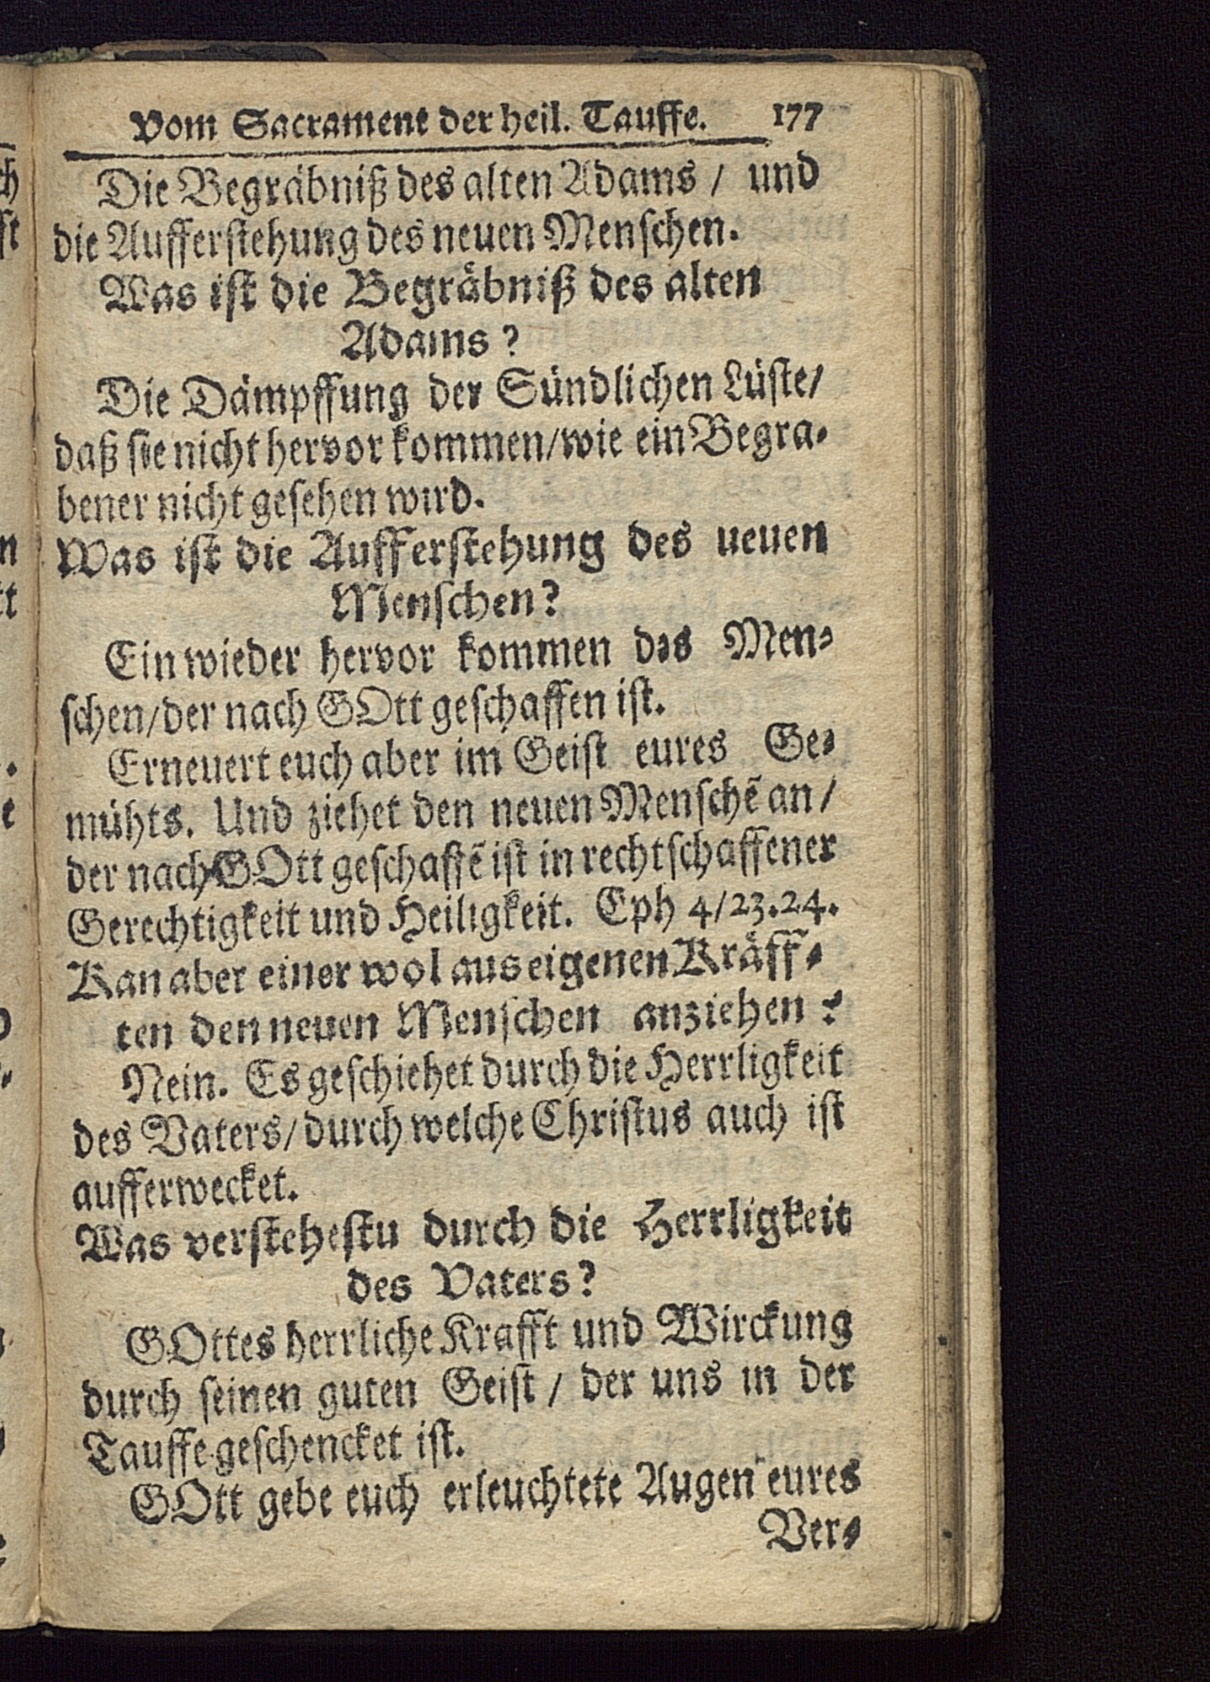 Vom Sacrament der heil. Tauffe. 177
Die Begräbniß des alten Adams / und
die Aufferstehung des neuen Menschen.
Was ist die Begräbniß des alten
Adams?
Die Dämpffung der Sündlichen Lüste/
daß sie nicht hervor kommen/wie ein Begra-
bener nicht gesehen wird.
Was ist die Aufferstehung des ueuen
Menschen?
Ein wieder hervor kommen das Men-
schen/der nach GOtt geschaffen ist.
Erneuert euch aber im Geist eures Ge-
mühts. Und ziehet den neuen Menschẽ an/
der nach GOtt geschaffẽ ist in rechtschaffener
Gerechtigkeit und Heiligkeit. Eph 4/23.24.
Kan aber einer wol aus eigenen Kräff-
ten den neuen Menschen anziehen?
Nein. Es geschiehet durch die Herrligkeit
des Vaters/durch welche Christus auch ist
aufferwecket.
Was verstehestu durch die Herrligkeit
des Vaters?
GOttes herrliche Krafft und Wirckung
durch seinen guten Geist / der uns in der
Tauffe geschencket ist.
GOtt gebe euch erleuchtete Augen eures
Ver-